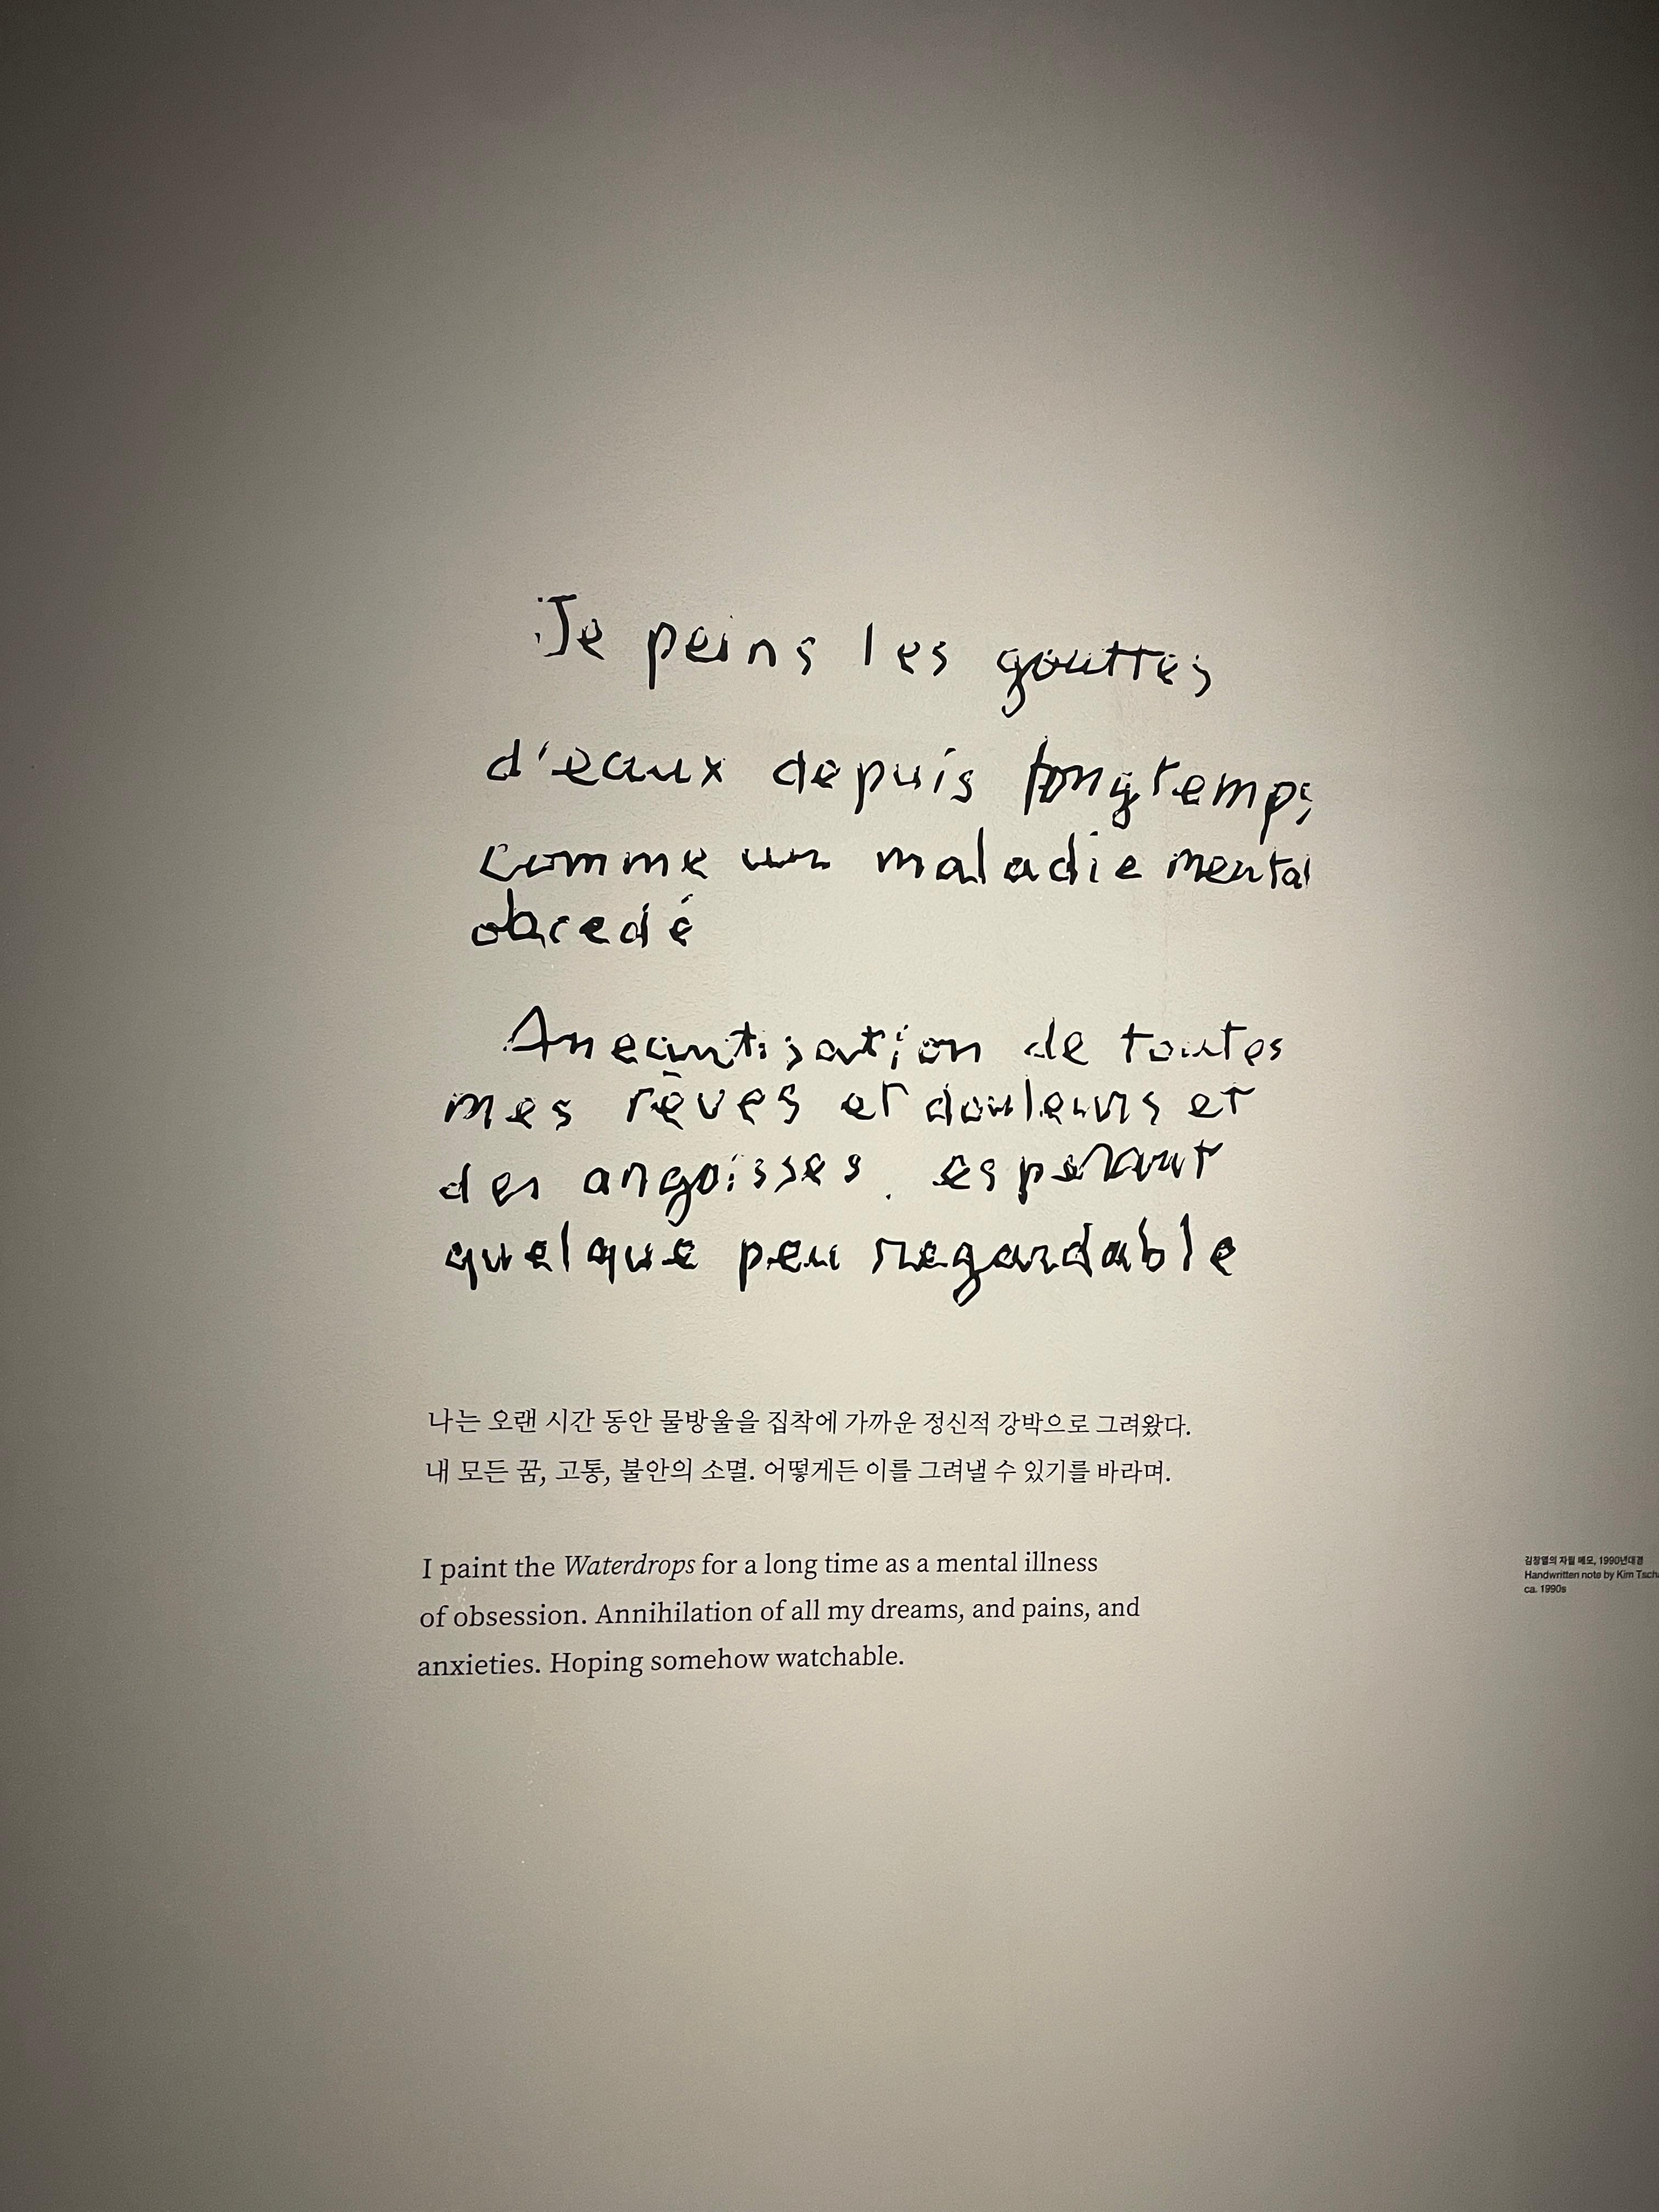 Je peins les gouttes
d'eaux depuis longtemps
comme un maladie mental
obcedé
Aneantisation de toutes
mes rêves et douleurs et
des angoisses. esperant
quelque peu regardable
나는 오랜 시간 동안 물방울을 집착에 가까운 정신적 강박으로 그려왔다.
내 모든 꿈, 고통, 불안의 소멸. 어떻게든 이를 그려낼 수 있기를 바라며.
I paint the Waterdrops for a long time as a mental illness
of obsession. Annihilation of all my dreams, and pains, and
anxieties. Hoping somehow watchable.
김창열의 자필 메모, 1990년대경
Handwritten note by Kim Tscha
ca. 1990s